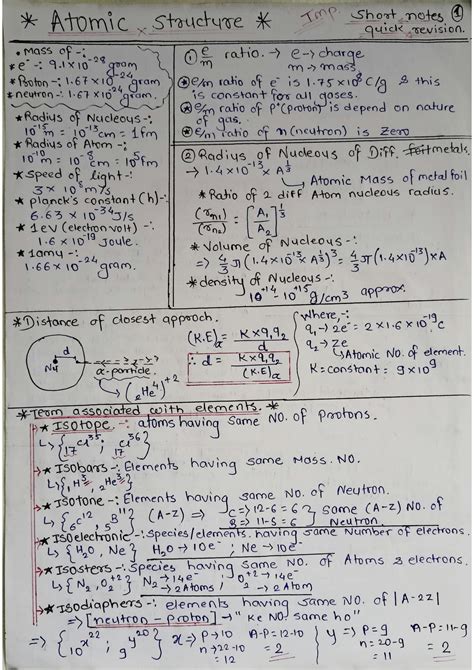 * Atomic Structure *
Imp. Short notes ①
quick revision.
• mass of -:
* e⁻ : 9.1×10⁻²⁸ gram
* Proton -: 1.67×10⁻²⁴ gram
* neutron -: 1.67×10⁻²⁴ gram.
* Radius of Nucleous -:
10⁻¹⁵m = 10⁻¹³cm = 1fm
* Radius of Atom -:
10⁻¹⁰m = 10⁻⁸cm = 10⁵fm
* Speed of light -:
3 × 10⁸ m/s
* planck's constant (h) -:
6.63 × 10⁻³⁴ J/s
* 1eV (electron volt) -:
1.6 × 10⁻¹⁹ Joule.
* 1amu -:
1.66 × 10⁻²⁴ gram.
① e/m ratio. → e → charge
m → mass
* e/m ratio of e⁻ is 1.75×10⁸ C/g & this
is constant for all gases.
* e/m ratio of P⁺(proton) is depend on nature
of gas.
* e/m ratio of n (neutron) is Zero
② Radius of Nucleous of Diff. metals.
→ 1.4×10⁻¹³ × A^1/3
→ Atomic Mass of metal foil
* Ratio of 2 diff Atom nucleous radius.
(rn1)/(rn2) = [A₁/A₂]^1/3
* Volume of Nucleous -:
⇒ 4/3 π (1.4×10⁻¹³ × A^1/3)³ = 4/3 π (1.4×10⁻¹³) × A
* density of Nucleous -:
10⁺¹⁴ - 10⁺¹⁵ g/cm3 approx.
* Distance of closest approch.
d
Nu
α-particle.
→ (₂He⁴)⁺²
(K.E)α = K×q₁q₂/d
∴ d = K×q₁q₂/(K.E)α
where,-:
q₁ → 2e⁻ = 2×1.6×10⁻¹⁹ c
q₂ → Ze
→ Atomic NO. of element.
K = constant = 9×10⁹
* Team associated with elements. *
* Isotope -: atoms having Same NO. of Protons.
↳ {₁₇Cl³⁵, ₁₇Cl³⁶}
* Isobars -: Elements having same Mass. NO.
↳ {₁H³, ₂He³}
* Isotone -: Elements having same NO. of Neutron.
↳ {₆C¹², ₅B¹¹} (A-Z) ⇒ C ⇒ 12-6 = 6 B ⇒ 11-5 = 6 } Some (A-Z) NO. of Neutron.
* Isoelectronic -: Species/elements. having same Number of electrons.
↳ {H₂O, Ne} H₂O → 10e⁻ ; Ne → 10e⁻
* Isosters -: Species having Same NO. of Atoms & electrons.
↳ {N₂, O₂⁺²} N₂ → 14e⁻ → 2Atoms ; O₂⁺² → 14e⁻ → 2Atom
* Isodiaphers -: elements having same NO. of |A-2Z|
⇒ [neutron - proton] → "Ke NO. same ho"
⇒ {₁₀x²², ₉y²⁰} x ⇒ P → 10 A-P = 12-10 y ⇒ P = 9 A-P = 11-9
n → 22-10 = 2 n = 20-9 = 2
= 12 = 11